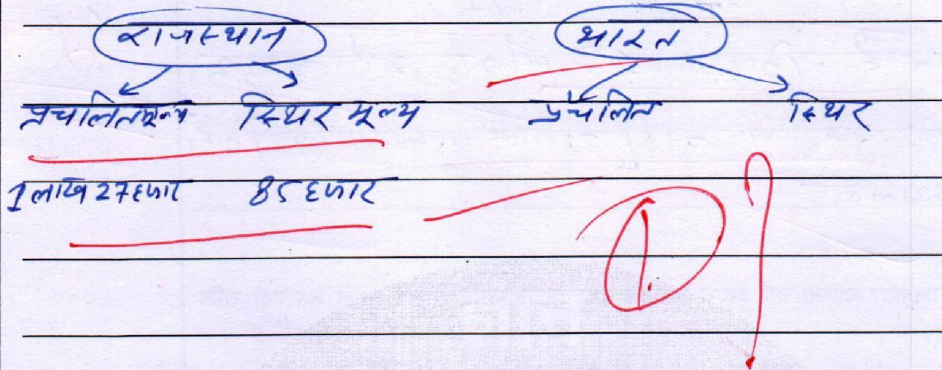 राजस्थान भारत
प्रचलित मूल्य स्थिर मूल्य प्रचलित स्थिर
1 लाख 27 हजार 85 हजार
1